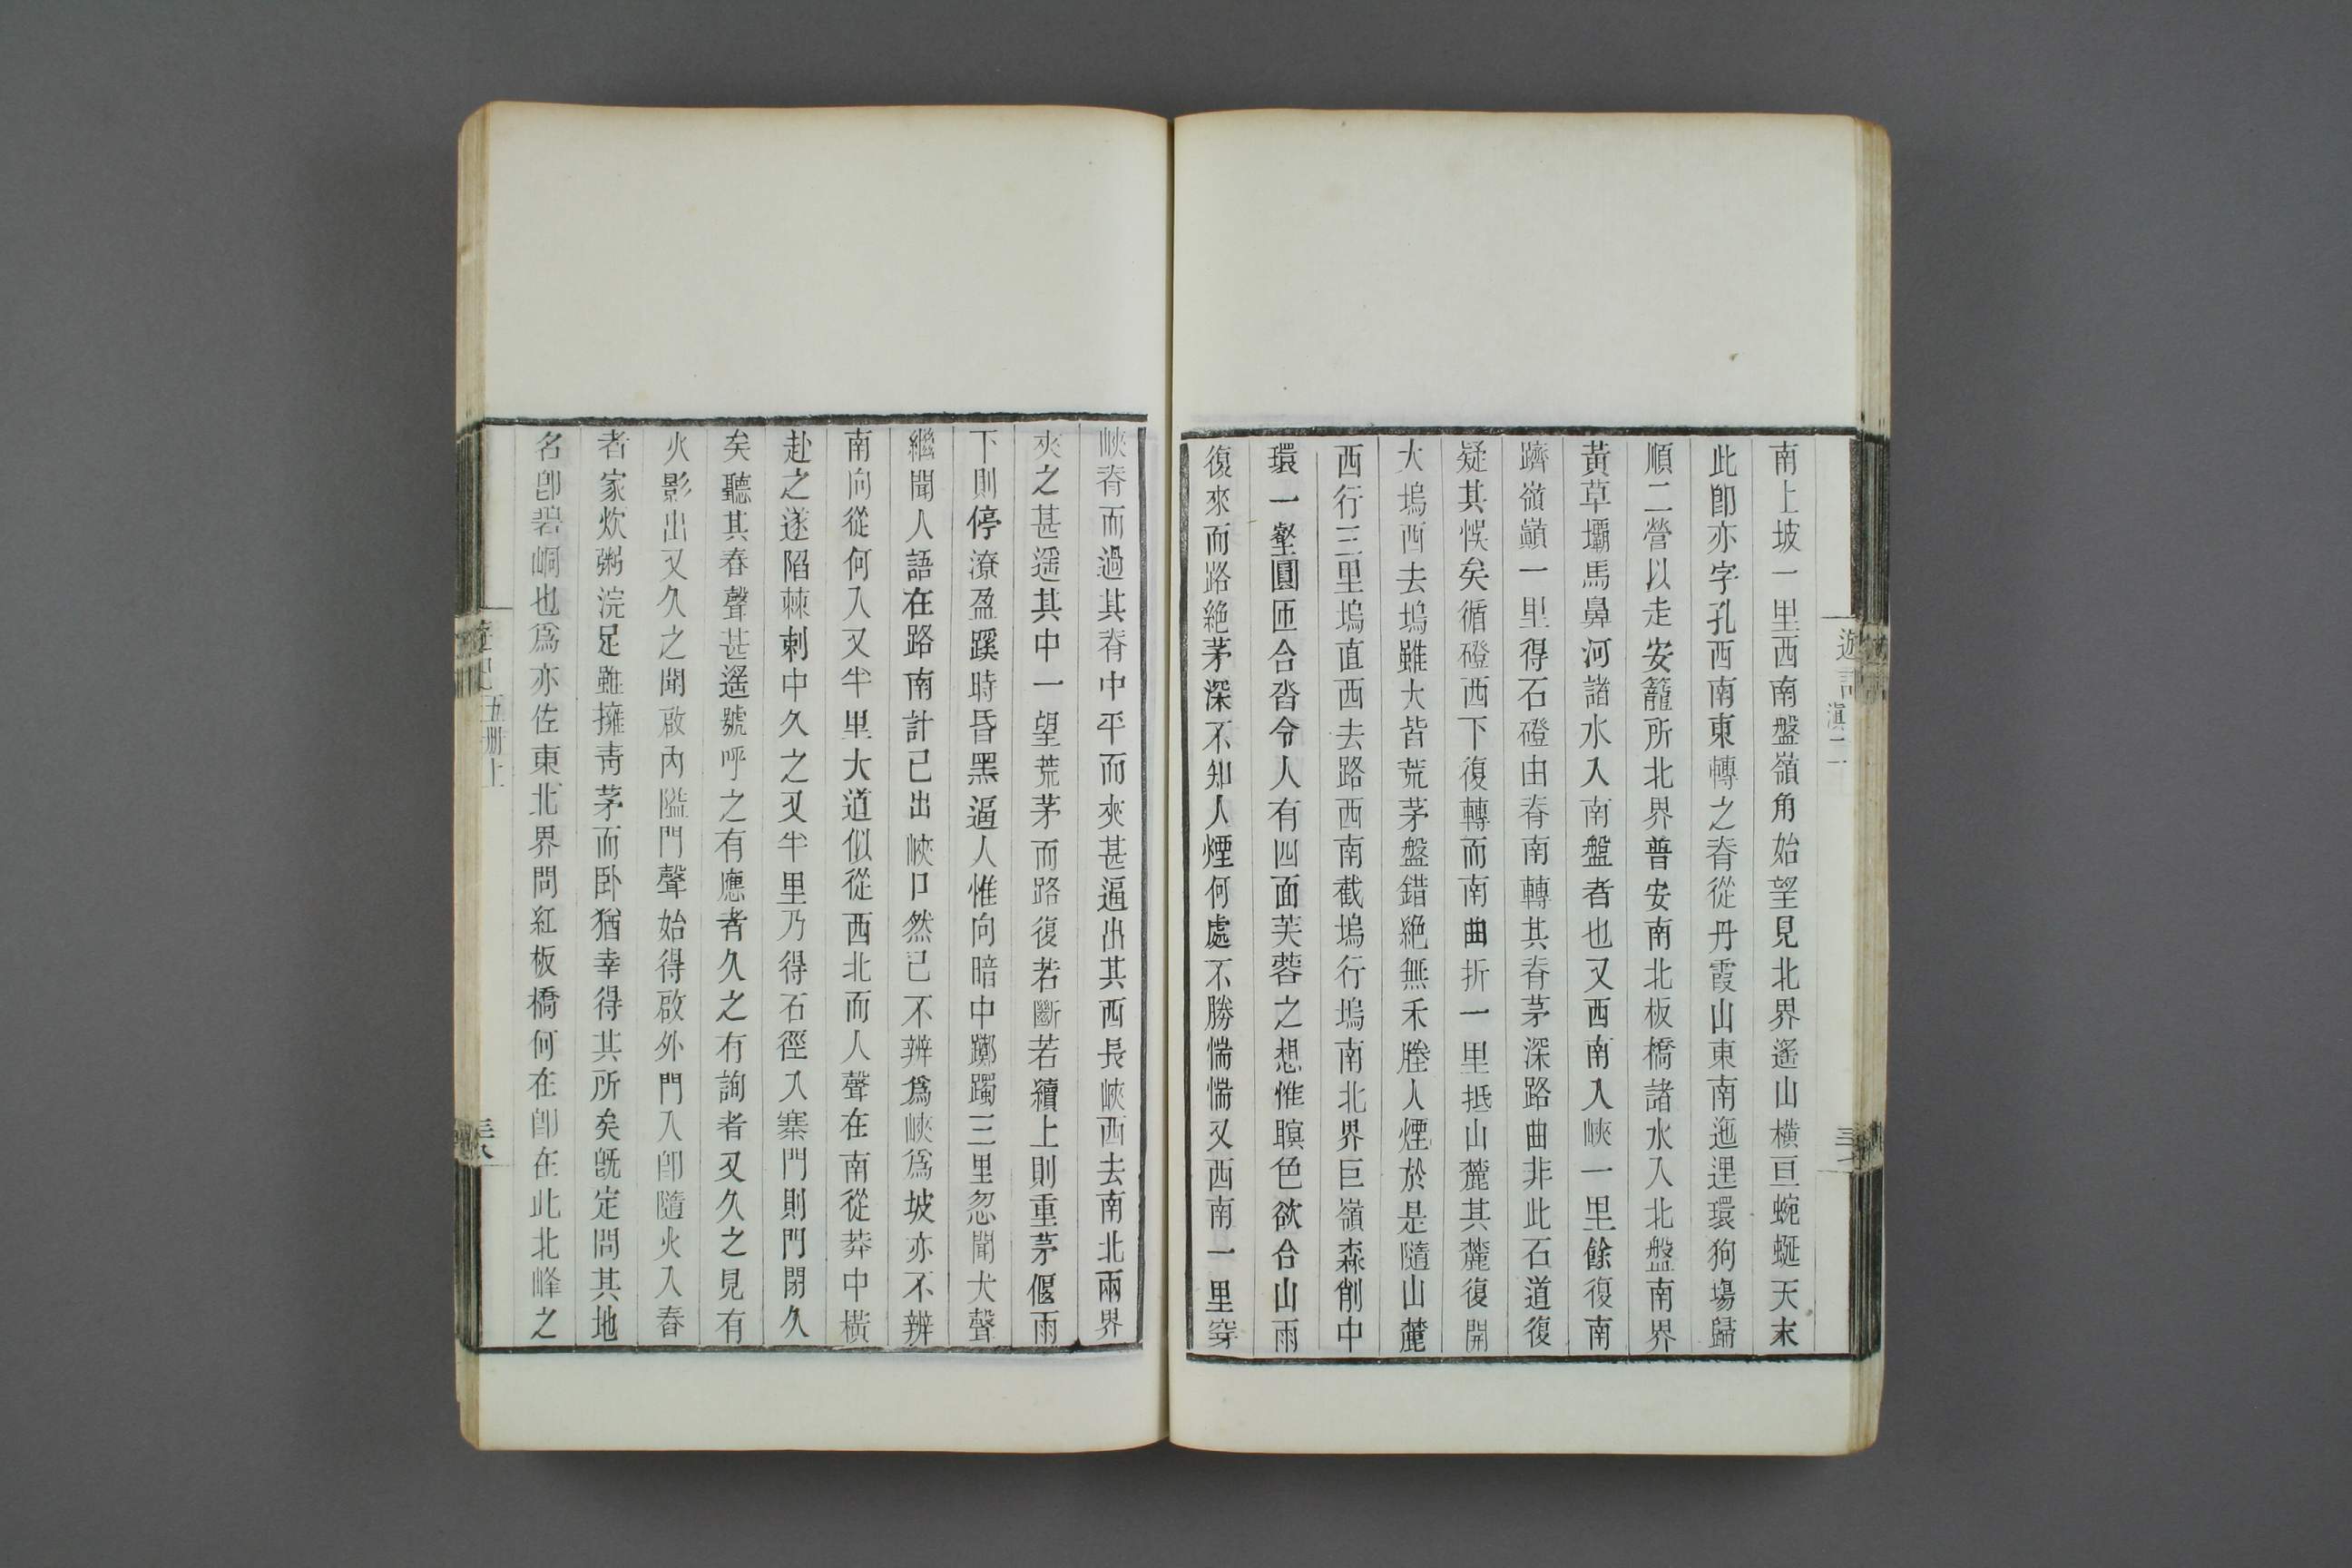 南上坡一里西南盤嶺角始望見北界遙山橫亘蜿蜒天末
此卽亦字孔西南東轉之脊從丹霞山東南迤逦環狗場歸
順二營以走安籠所北界普安南北板橋諸水入北盤南界
黃草壩馬鼻河諸水入南盤者也又西南入峽一里餘復南
躋嶺巔一里得石磴由脊南轉其脊茅深路曲非此石道復
疑其悞矣循磴西下復轉而南曲折一里抵山麓其麓復開
大塢西去塢雖大皆荒茅盤錯絕無禾塍人煙於是隨山麓
西行三里塢直西去路西南截塢行塢南北界巨嶺森削中
環一壑圓匝合沓令人有四面芙蓉之想惟瞑色欲合山雨
復來而路絕茅深不知人煙何處不勝惴惴又西南一里穿
峽脊而過其脊中平而夾甚逼出其西長峽西去南北兩界
夾之甚遥其中一望荒茅而路復若斷若續上則重茅偃雨
下則停潦盈蹊時昏黑逼人惟向暗中躑躅三里忽聞犬聲
繼聞人語在路南計已出峽口然已不辨爲峽爲坡亦不辨
南向從何入又半里大道似從西北而人聲在南從莽中橫
赴之遂陷棘刺中久之又半里乃得石徑入寨門則門閉久
矣聽其舂聲甚遙號呼之有應者久之有詢者又久之見有
火影出又久之聞啟內隘門聲始得啟外門入卽隨火入舂
者家炊粥浣足雖擁青茅而臥猶幸得其所矣旣定問其地
名卽碧峒也爲亦佐東北界問紅板橋何在卽在此北峰之
遊記
滇二
五册上
三八